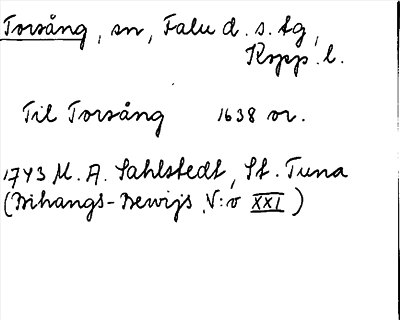 Torsång, sn, Falu d. s. tg,
Kopp. l.
Til Torsång 1638 or.
1743 M. A. Sahlstedt, St. Tuna
(Bihangs-Bewijs V:o XXI)